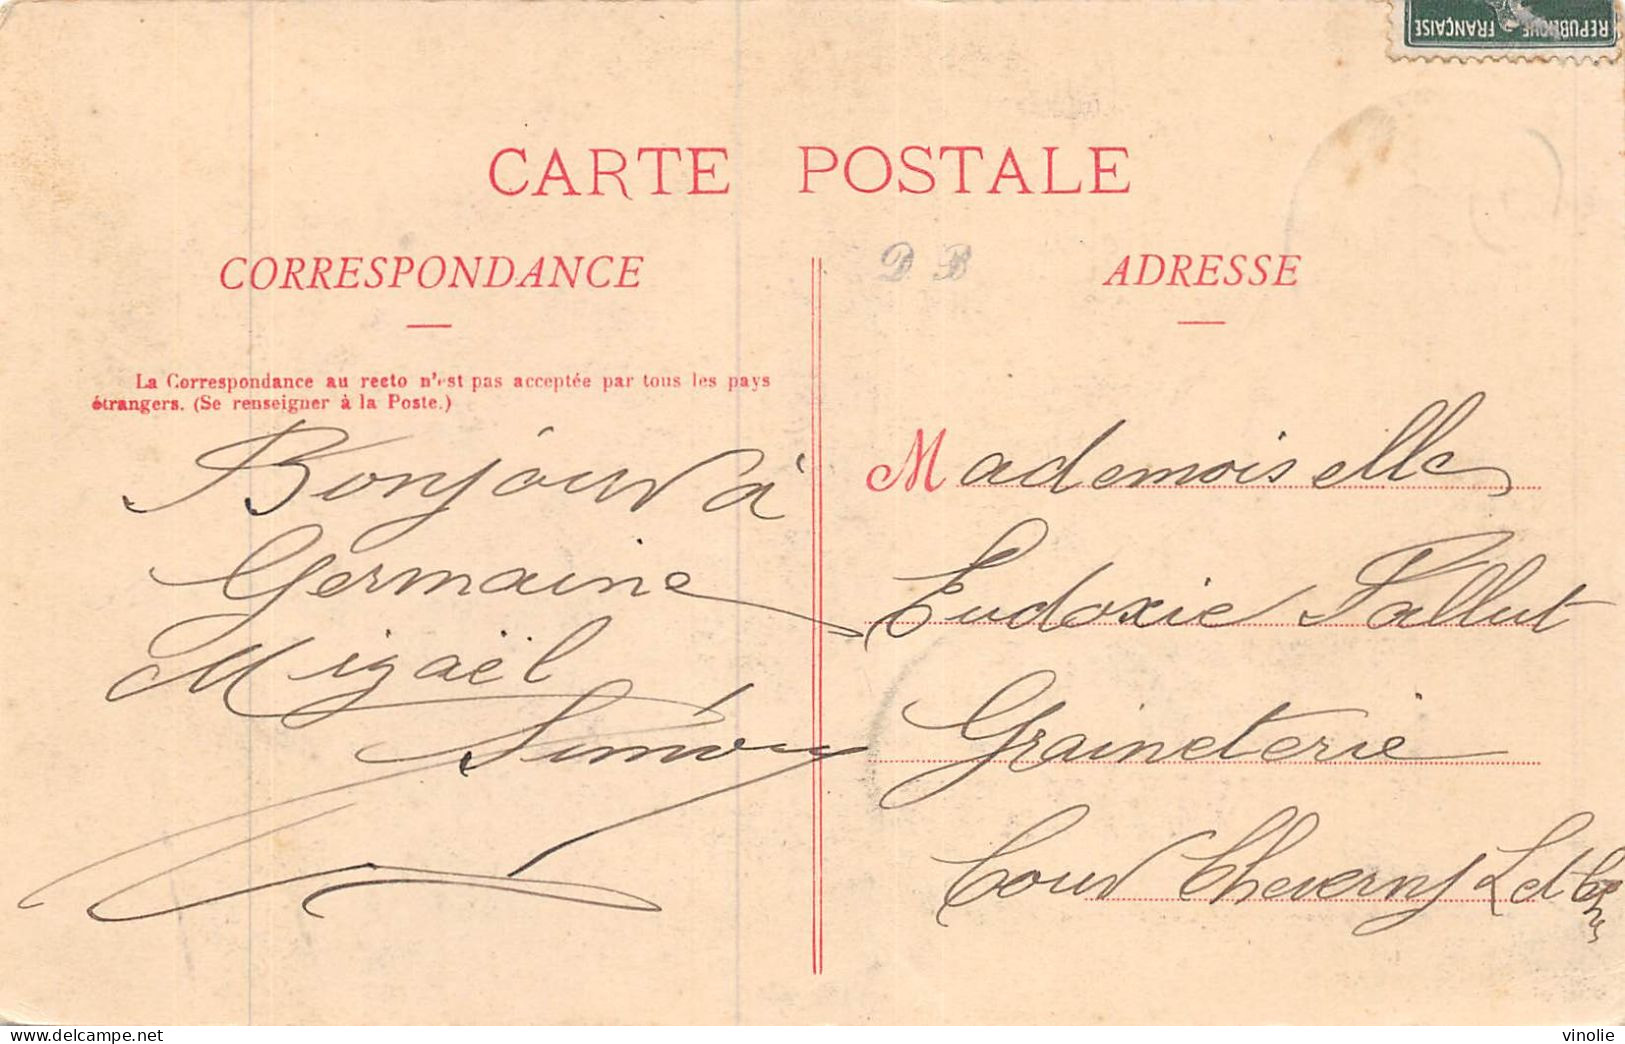 REPUBLIQUE FRANÇAISE
CARTE POSTALE
CORRESPONDANCE
D B
ADRESSE
La Correspondance au recto n'est pas acceptée par tous les pays
étrangers. (Se renseigner à la Poste.)
Bonjour à
Germaine
Migaël
Simon
Mademoiselle
Eudoxie Pallut
Graineterie
Cour Cheverny L et Cher
vinolie